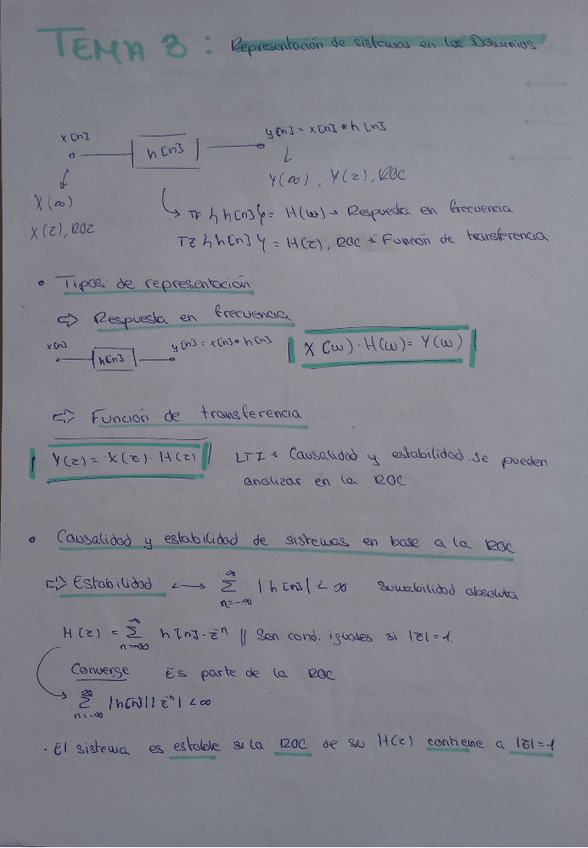 TEMA 3: Representación de sistemas en los Dominios
x[n]
h[n]
y[n] = x[n] * h[n]
X(ω)
X(z), ROC
Y(ω), Y(z), ROC
TF{h[n]} = H(ω) → Respuesta en frecuencia
TZ{h[n]} = H(z), ROC → Función de transferencia
• Tipos de representación
⇨ Respuesta en frecuencia
x[n]
h[n]
y[n] = x[n] * h[n]
X(ω) · H(ω) = Y(ω)
⇨ Función de transferencia
Y(z) = X(z) · H(z)
LTI → Causalidad y estabilidad se pueden
analizar en la ROC
• Causalidad y estabilidad de sistemas en base a la ROC
⇨ Estabilidad ⟷ ∑_{n=-∞}^{∞} |h[n]| < ∞ Sumabilidad absoluta
H(z) = ∑_{n=-∞}^{∞} h[n] · z^{-n} // Son cond. iguales si |z| = 1.
Converge Es parte de la ROC
∑_{n=-∞}^{∞} |h[n]| |z^{-n}| < ∞
· El sistema es estable si la ROC de su H(z) contiene a |z| = 1